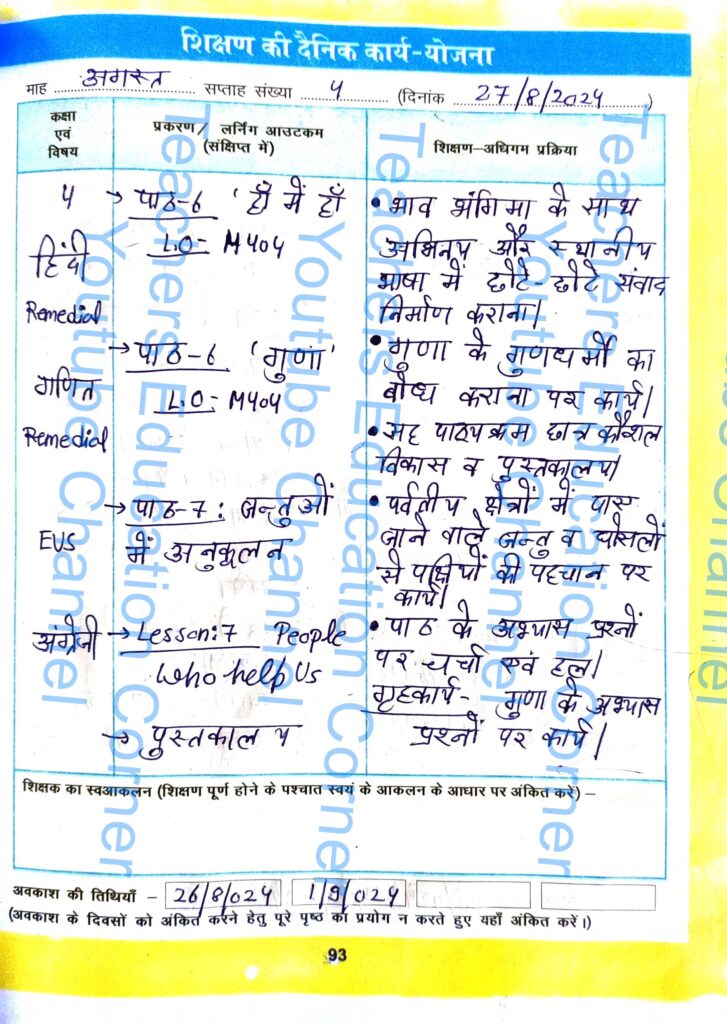 शिक्षण की दैनिक कार्य-योजना
माह अगस्त सप्ताह संख्या 4 (दिनांक 27/8/2024)
कक्षा एवं विषय
प्रकरण/ लर्निंग आउटकम (संक्षिप्त में)
शिक्षण-अधिगम प्रक्रिया
4
हिंदी
Remedial
→ पाठ-6 'हाँ में हाँ
LO- M404
• भाव भंगिमा के साथ
अभिनय और स्थानीय
भाषा में छोटे-छोटे संवाद
निर्माण कराना।
गणित
Remedial
→ पाठ-6 'गुणा'
LO: M404
• गुणा के गुणधर्मो का
बोध कराना पर कार्य।
• सह पाठ्यक्रम छात्र कौशल
विकास व पुस्तकालय।
EVS
→ पाठ-7: जन्तुओं
में अनुकूलन
• पर्वतीय क्षेत्रों में पाए
जाने वाले जन्तु व घोसलों
से पक्षियों की पहचान पर
कार्य।
अंग्रेजी
→ Lesson:7 People
who help Us
→ पुस्तकालय
• पाठ के अभ्यास प्रश्नों
पर चर्चा एवं हल।
गृहकार्य- गुणा के अभ्यास
प्रश्नों पर कार्य।
शिक्षक का स्वआकलन (शिक्षण पूर्ण होने के पश्चात स्वयं के आकलन के आधार पर अंकित करें) –
अवकाश की तिथियाँ – 26/8/024 1/9/024
(अवकाश के दिवसों को अंकित करने हेतु पूरे पृष्ठ का प्रयोग न करते हुए यहाँ अंकित करें।)
93
Teachers Education Corner
Youtube Channel
Teachers Education Corner
Youtube Channel
Teachers Education Corner
Youtube Channel